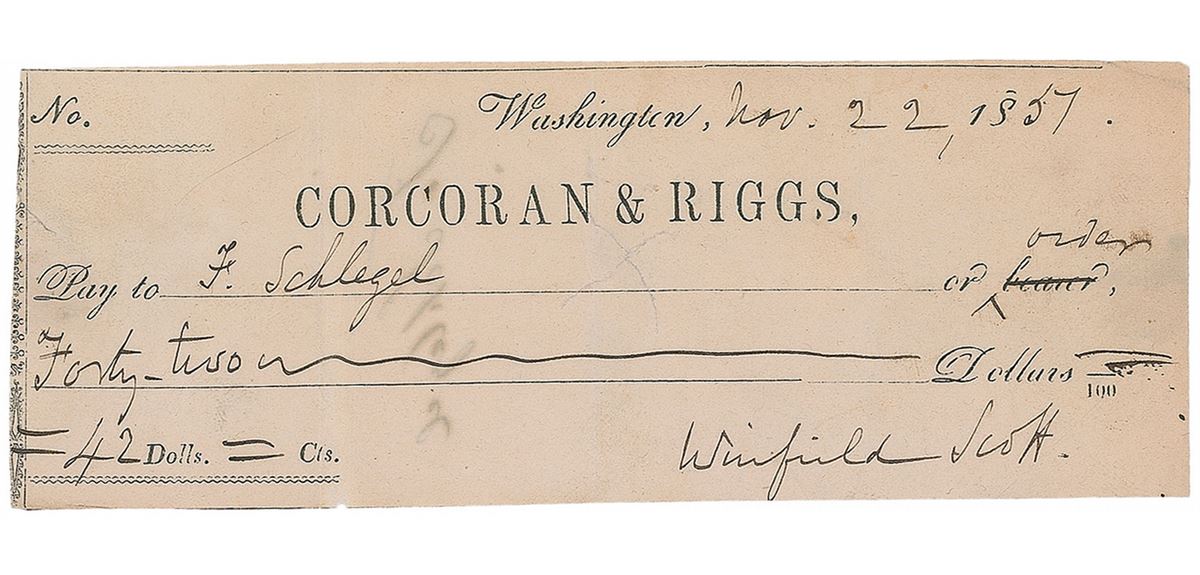 No.
Washington, Nov. 22, 1851.
CORCORAN & RIGGS,
order
Pay to F. Schlegel or bearer,
Forty-two Dollars
100
= 42 Dolls. = Cts.
Winfield Scott.